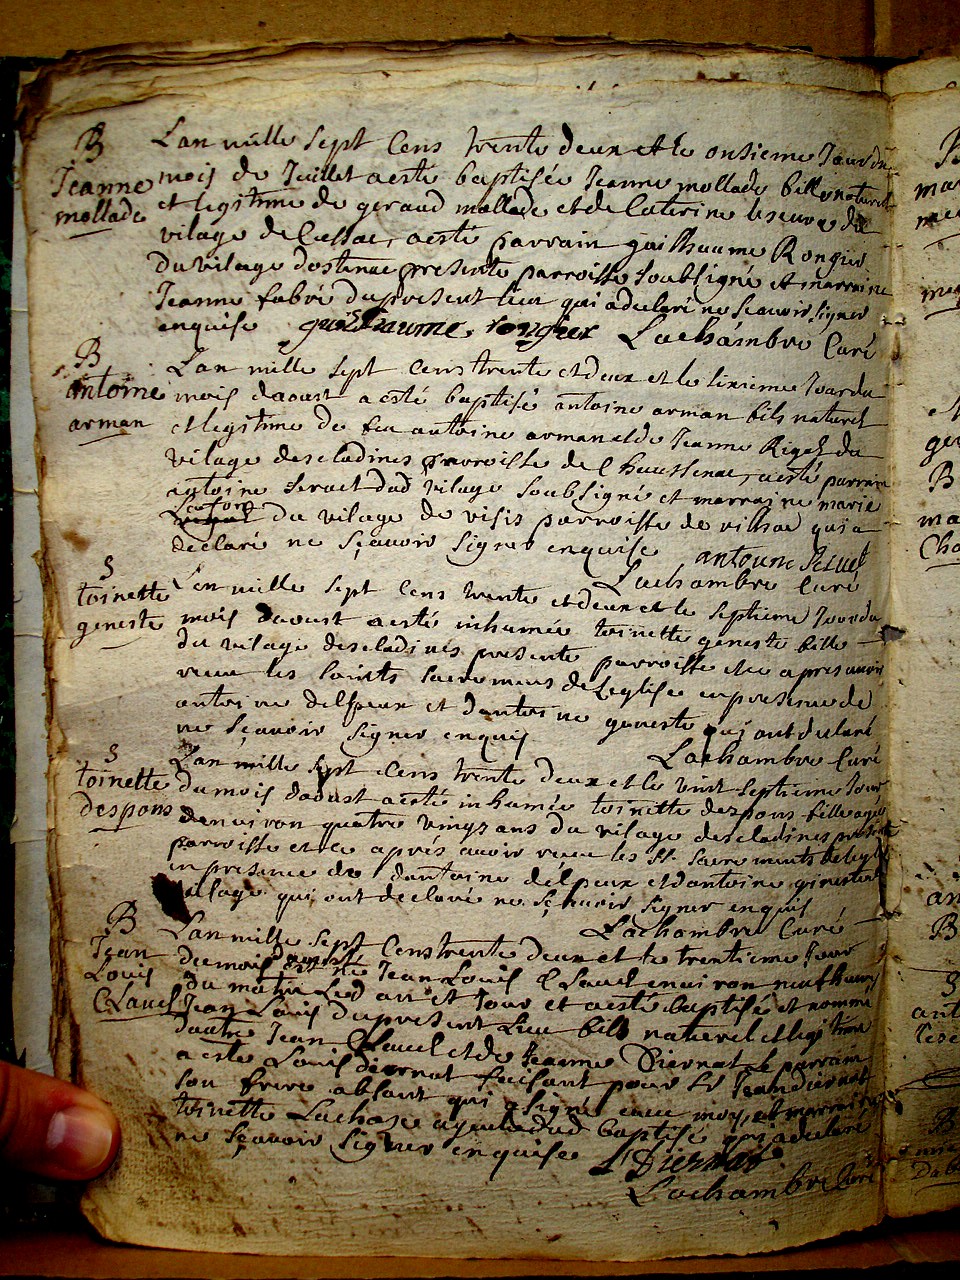 B
Jeanne
mollade
Lan mille sept Cens trente deux et le onsieme Jour du
mois de Juillet a esté baptisée Jeanne mollade fille naturel
et legitime de geraud mollade et de Caterine leseure du
vilage de Cussac, a esté parrain guilhaume Rongier
du vilage dostenac presente parroisse soubsigné et marraine
Jeanne fabre du present lieu qui a declaré ne scavoir signer
enquise guilhaume rongier Lachambre Curé
B
antoine
arman
Lan mille sept Cens trente et deux et le sixieme Jour du
mois daoust a esté baptisé antoine arman fils naturel
et legitime de feu antoine arman et de Jeanne Rigal du
vilage descladines parroisse de Chaussenac, a esté parrain
antoine seruet dud vilage soubsigné et marraine marie
du vilage de visis parroisse de vilhac qui a
declaré ne sçavoir signer enquise antoine seruet
Lachambre Curé
S
toinette
geneste
Lan mille sept Cens trente et deux et le septieme Jour du
mois daoust a esté inhumée toinette geneste fille
du vilage descladines presente parroisse et ce apres avoir
receu les saints sacremens de Leglise en presence de
antoine delpeux et dantoine geneste qui ont declaré
ne sçavoir signer enquis Lachambre Curé
S
toinette
despons
Lan mille sept Cens trente deux et le vint septieme Jour
du mois daoust a esté inhumée toinette despons fille agée
denviron quatre vingz ans du vilage descladines presente
parroisse et ce apres avoir receu les st. sacrements de leglise
en presence de dantoine delpeux et dantoine ginestet
vilage qui ont declaré ne sçavoir signer enquis
Lachambre Curé
B
Jean
Louis
Clauel
Lan mille sept Cens trente deux et le trentieme Jour
du mois daoust est né Jean Louis Clauel environ neuf heures
du matin Led an et Jour et a esté baptisé et nommé
Jean Louis du present Lieu fils naturel et legitime
dautre Jean Clauel et de Jeanne Diernat le parrain
a esté Louis diernat faisant pour Sr Jean Diernat
son frere absant qui a signé avec moy, et marraine
toinette Lachaze ayeule dud baptisé qui a declaré
ne sçavoir signer enquise L Diernat
Lachambre Curé